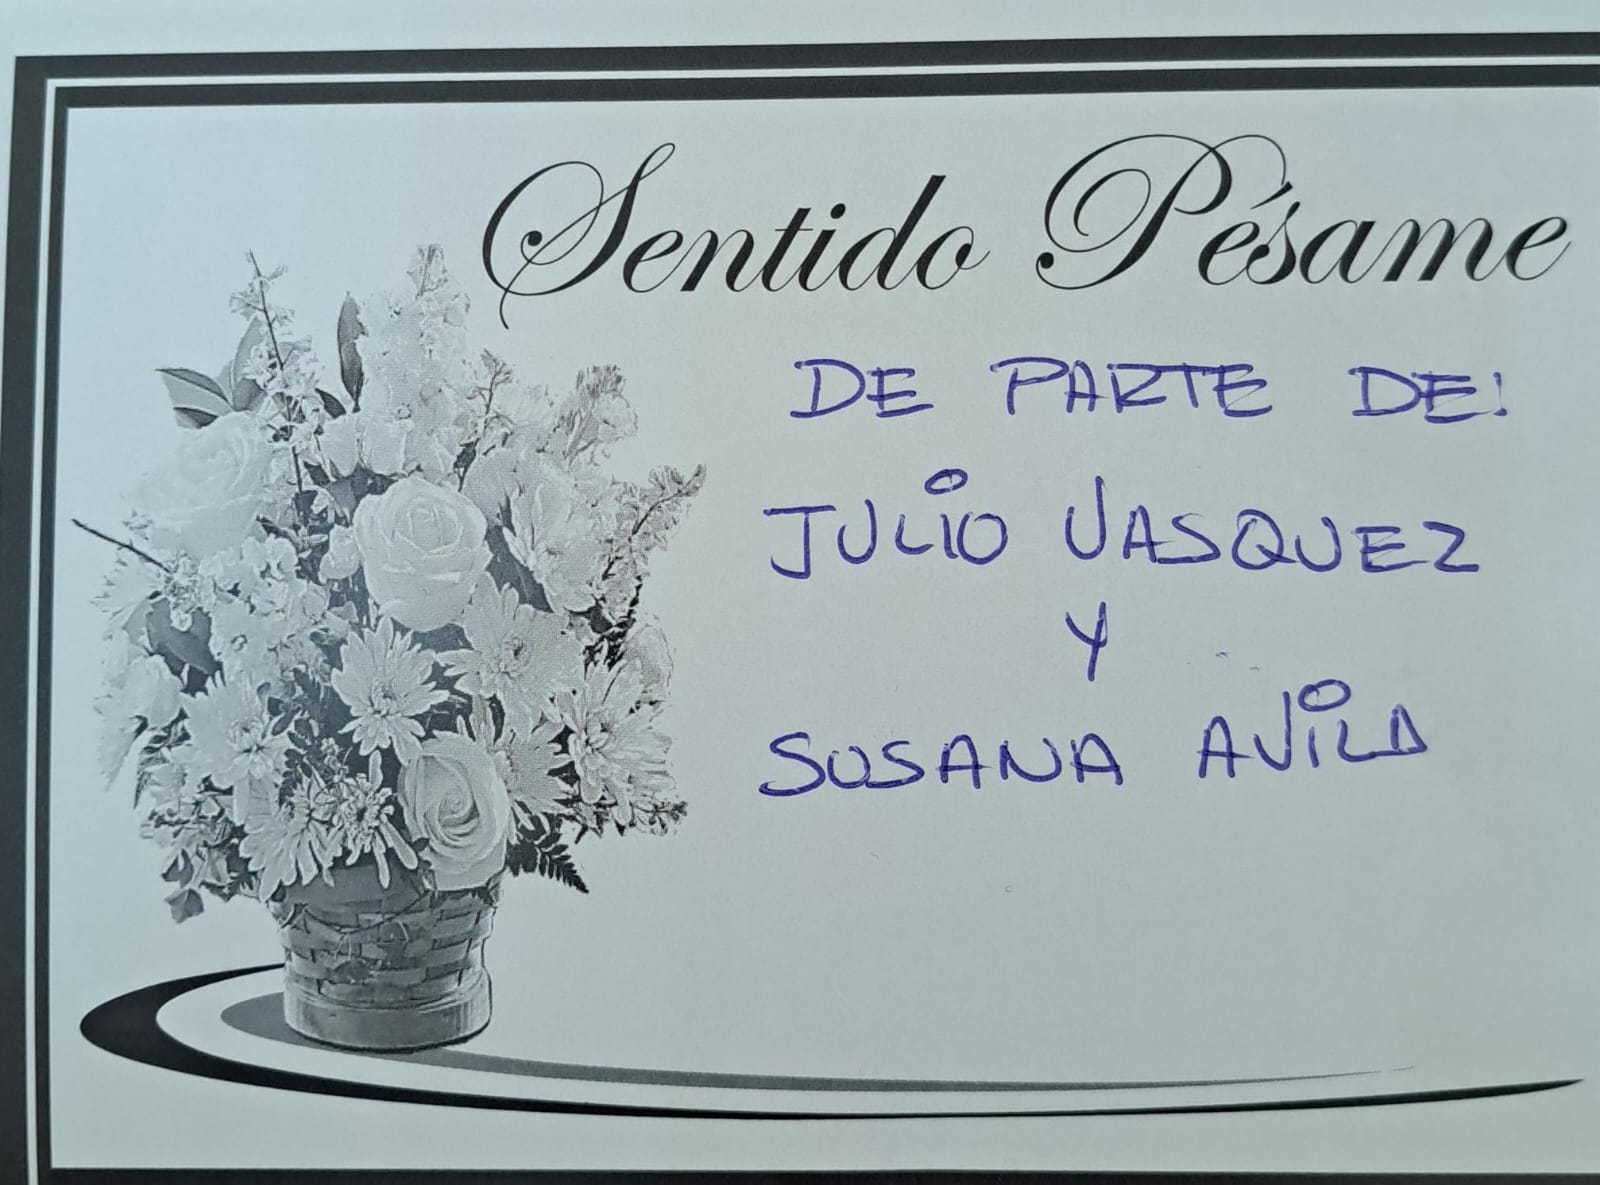 Sentido Pésame
DE PARTE DE:
JULIO VASQUEZ
Y
SUSANA AVILA